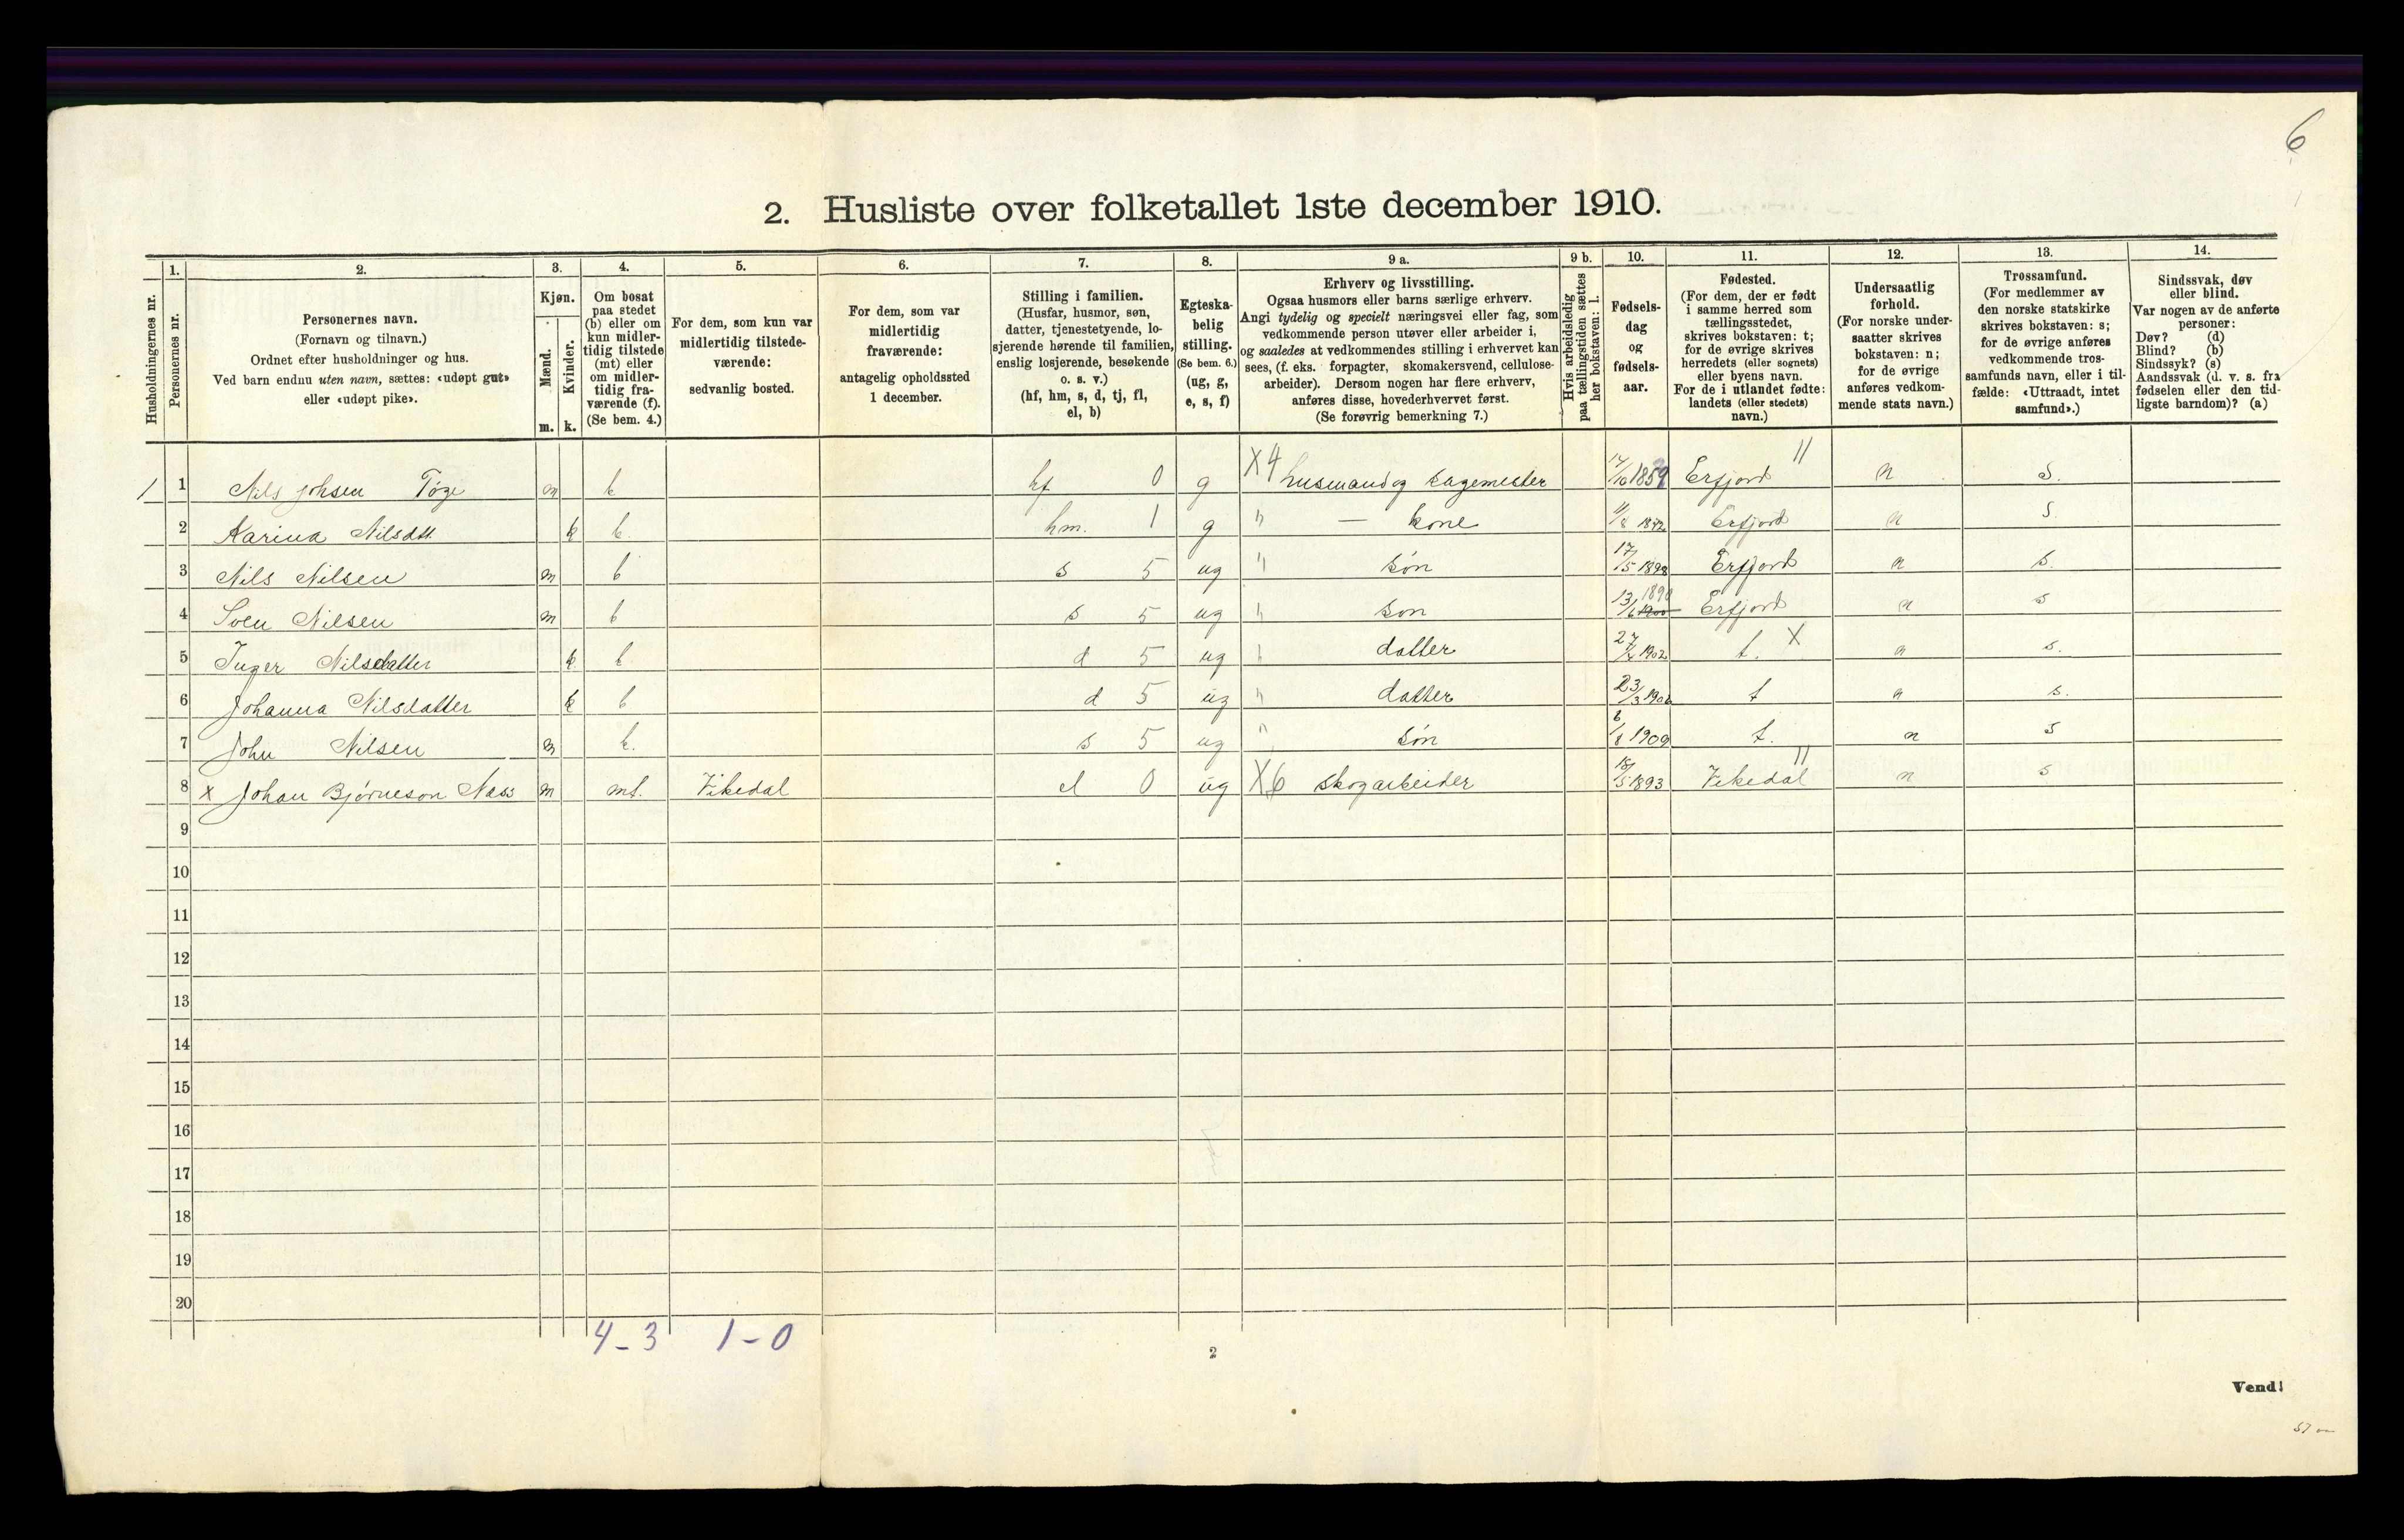 6
2. Husliste over folketallet 1ste december 1910.
Husholdningernes nr.
1. Personernes nr.
2. Personernes navn.
(Fornavn og tilnavn.)
Ordnet efter husholdninger og hus.
Ved barn endnu uten navn, sættes: «udøpt gut»
eller «udøpt pike».
3. Kjøn.
Mænd. m.
Kvinder. k.
4. Om bosat
paa stedet
(b) eller om
kun midler-
tidig tilstede
(mt) eller
om midler-
tidig fra-
værende (f).
(Se bem. 4.)
5. For dem, som kun var
midlertidig tilstede-
værende:
sedvanlig bosted.
6. For dem, som var
midlertidig
fraværende:
antagelig opholdssted
1 december.
7. Stilling i familien.
(Husfar, husmor, søn,
datter, tjenestetyende, lo-
sjerende hørende til familien,
enslig losjerende, besøkende
o. s. v.)
(hf, hm, s, d, tj, fl,
el, b)
8. Egteska-
belig
stilling.
(Se bem. 6.)
(ug, g,
e, s, f)
9 a. Erhverv og livsstilling.
Ogsaa husmors eller barns særlige erhverv.
Angi tydelig og specielt næringsvei eller fag, som
vedkommende person utøver eller arbeider i,
og saaledes at vedkommendes stilling i erhvervet kan
sees, (f. eks. forpagter, skomakersvend, cellulose-
arbeider). Dersom nogen har flere erhverv,
anføres disse, hovederhvervet først.
(Se forøvrig bemerkning 7.)
9 b. Hvis arbeidsledig
paa tællingstiden sættes
her bokstaven: l.
10. Fødsels-
dag
og
fødsels-
aar.
11. Fødested.
(For dem, der er født
i samme herred som
tællingsstedet,
skrives bokstaven: t;
for de øvrige skrives
herredets (eller sognets)
eller byens navn.
For de i utlandet fødte:
landets (eller stedets)
navn.)
12. Undersaatlig
forhold.
(For norske under-
saatter skrives
bokstaven: n;
for de øvrige
anføres vedkom-
mende stats navn.)
13. Trossamfund.
(For medlemmer av
den norske statskirke
skrives bokstaven: s;
for de øvrige anføres
vedkommende tros-
samfunds navn, eller i til-
fælde: «Uttraadt, intet
samfund».)
14. Sindssvak, døv
eller blind.
Var nogen av de anførte
personer:
Døv? (d)
Blind? (b)
Sindssyk? (s)
Aandssvak (d. v. s. fra
fødselen eller den tid-
ligste barndom)? (a)
1 1 Nils Johsen Tøge m b hf 0 g X4 husmand og sagemester Erfjord 11 n s.
2 Karina Nilsdtt k b. hm. 1 g " — kone Erfjord n s.
3 Nils Nilsen m b s 5 ug " søn 17/5 1898 Erfjord n s.
4 Sven Nilsen m b s 5 ug " søn Erfjord n s
5 Inger Nilsdatter k b d 5 ug " datter t. X n s.
6 Johanna Nilsdatter k b d 5 ug " datter t n s.
7 John Nilsen m b. s 5 ug " søn 6/8 1909 t. n s
8 x Johan Bjørneson Næss m mt. Vikedal el 0 ug X6 skogarbeider 18/5 1893 Vikedal 11 n s
9
10
11
12
13
14
15
16
17
18
19
20
4-3 1-0
2
Vend!